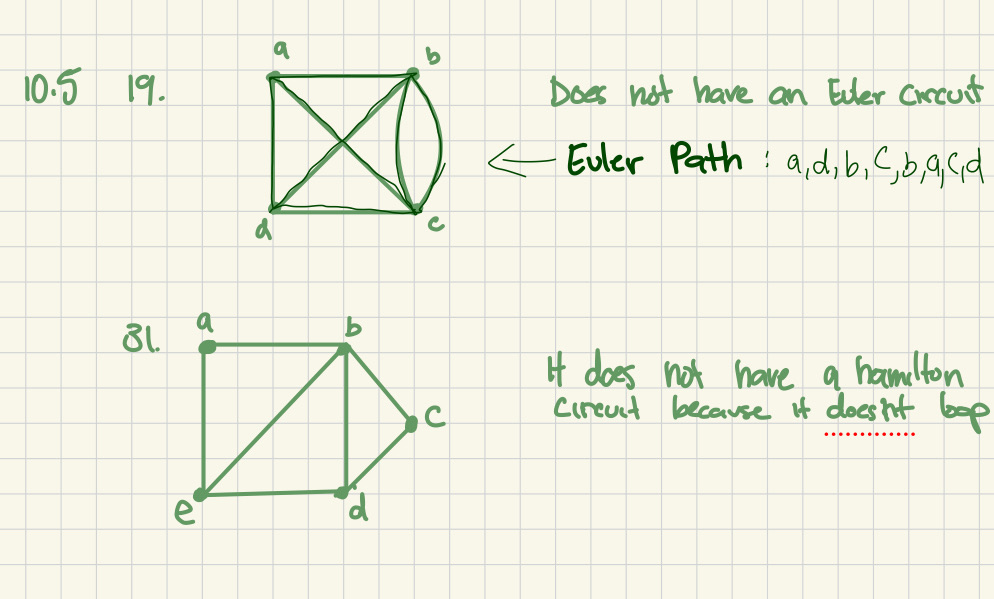 10.5 19.
a
b
Does not have an Euler circuit
← Euler Path : a,d,b,c,b,a,c,d
d
c
31.
a
b
It does not have a hamilton
circuit because it doesint loop
c
e
d